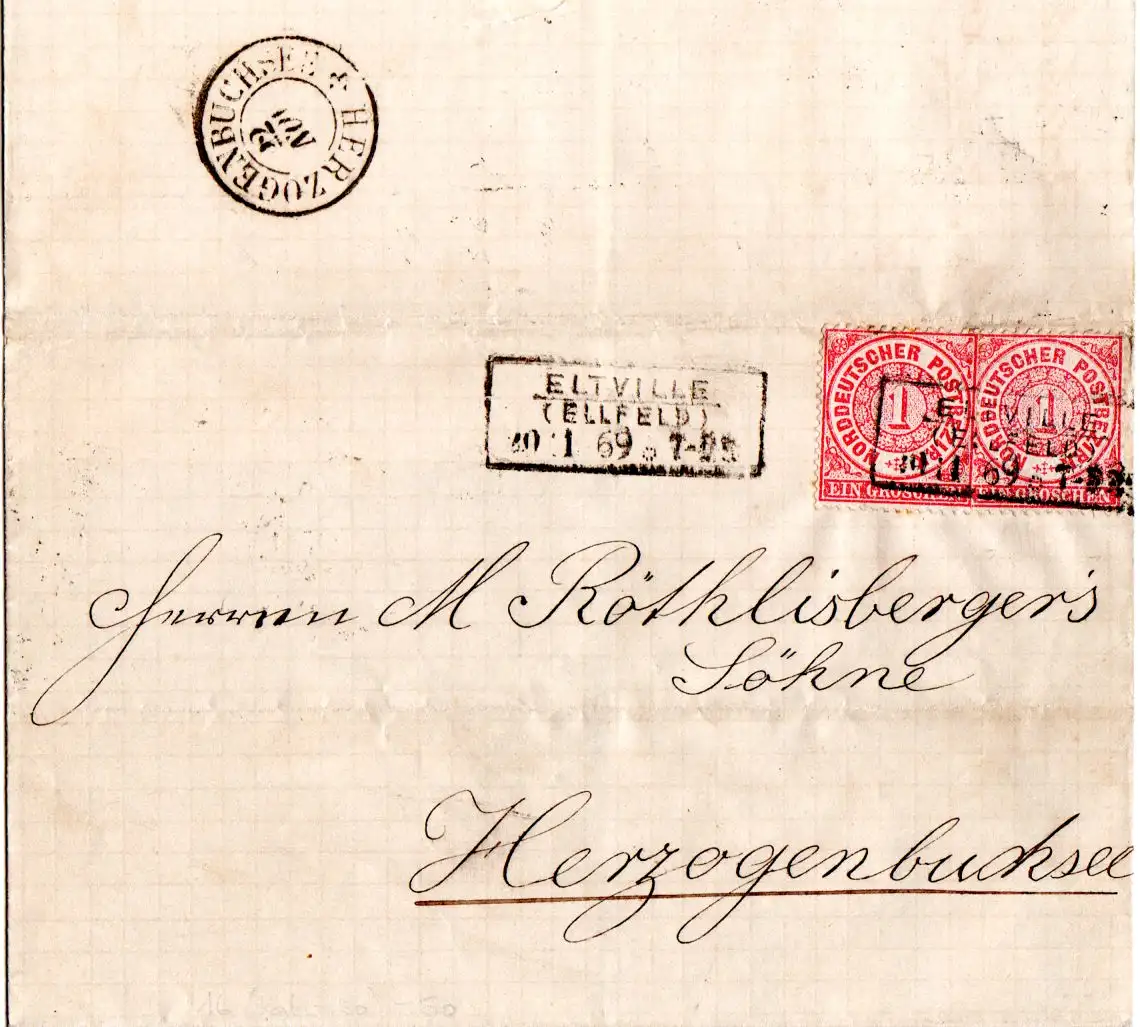 HERZOGENBUCHSEE
NOV
ELTVILLE
(ELLFELD)
1 69 * 7-
NORDDEUTSCHER POSTBEZIRK
1
EIN GROSCHEN
NORDDEUTSCHER POSTBEZIRK
1
EIN GROSCHEN
ELTVILLE
(ELLFELD)
69 * 7-
Herren M Röthlisberger's
Söhne
Herzogenbuchsee